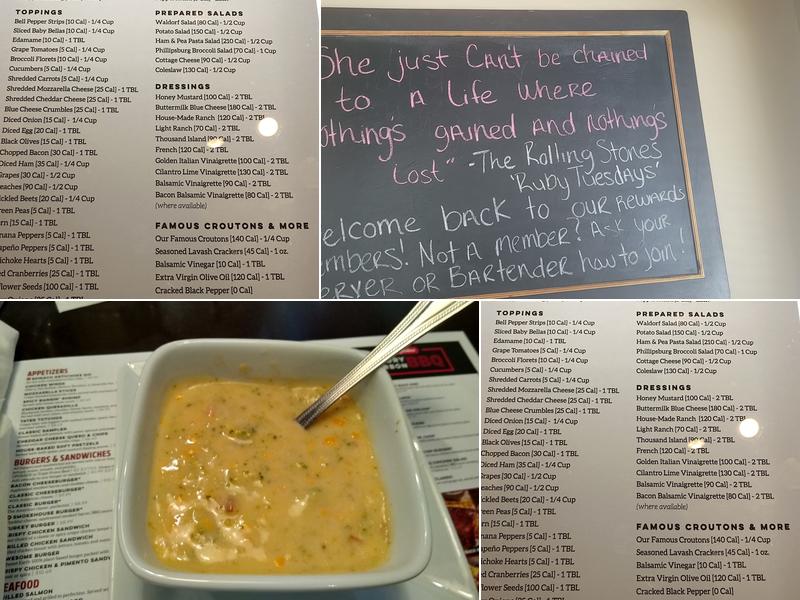 TOPPINGS
Bell Pepper Strips [10 Cal] - 1/4 Cup
Sliced Baby Bellas [10 Cal] - 1/4 Cup
Edamame [10 Cal] - 1 TBL
Grape Tomatoes [5 Cal] - 1/4 Cup
Broccoli Florets [10 Cal] - 1/4 Cup
Cucumbers [5 Cal] - 1/4 Cup
Shredded Carrots [5 Cal] - 1/4 Cup
Shredded Mozzarella Cheese [25 Cal] - 1 TBL
Shredded Cheddar Cheese [25 Cal] - 1 TBL
Blue Cheese Crumbles [25 Cal] - 1 TBL
Diced Onion [15 Cal] - 1/4 Cup
Diced Egg [20 Cal] - 1 TBL
Black Olives [15 Cal] - 1 TBL
Chopped Bacon [30 Cal] - 1 TBL
Diced Ham [35 Cal] - 1/4 Cup
rapes [30 Cal] - 1/2 Cup
eaches [90 Cal] - 1/2 Cup
ickled Beets [20 Cal] - 1/4 Cup
reen Peas [5 Cal] - 1 TBL
rn [15 Cal] - 1 TBL
nana Peppers [5 Cal] - 1 TBL
apeño Peppers [5 Cal] - 1 TBL
ichoke Hearts [5 Cal] - 1 TBL
ed Cranberries [25 Cal] - 1 TBL
flower Seeds [100 Cal] - 1 TBL
PREPARED SALADS
Waldorf Salad [80 Cal] - 1/2 Cup
Potato Salad [150 Cal] - 1/2 Cup
Ham & Pea Pasta Salad [210 Cal] - 1/2 Cup
Phillipsburg Broccoli Salad [70 Cal] - 1 Cup
Cottage Cheese [90 Cal] - 1/2 Cup
Coleslaw [130 Cal] - 1/2 Cup
DRESSINGS
Honey Mustard [100 Cal] - 2 TBL
Buttermilk Blue Cheese [180 Cal] - 2 TBL
House-Made Ranch [120 Cal] - 2 TBL
Light Ranch [70 Cal] - 2 TBL
Thousand Island [90 Cal] - 2 TBL
French [120 Cal] - 2 TBL
Golden Italian Vinaigrette [100 Cal] - 2 TBL
Cilantro Lime Vinaigrette [130 Cal] - 2 TBL
Balsamic Vinaigrette [90 Cal] - 2 TBL
Bacon Balsamic Vinaigrette [80 Cal] - 2 TBL
(where available)
FAMOUS CROUTONS & MORE
Our Famous Croutons [140 Cal] - 1/4 Cup
Seasoned Lavash Crackers [45 Cal] - 1 oz.
Balsamic Vinegar [10 Cal] - 1 TBL
Extra Virgin Olive Oil [120 Cal] - 1 TBL
Cracked Black Pepper [0 Cal]
She just Can't be chained
to a life where
othing's gained and nothing's
lost" - The Rolling Stones
'Ruby Tuesdays'
elcome back to our rewards
mbers! Not a member? Ask your
erver or Bartender how to join!
APPETIZERS
CHICKEN WINGS
MOZZARELLA STICKS
CHICKEN QUESADILLA
TATER TOTCHOS
CLASSIC SAMPLER
CHEDDAR CHEESE QUESO & CHIPS
HOUSE-BAKED SOFT PRETZELS
BURGERS & SANDWICHES
BACON CHEESEBURGER*
CLASSIC CHEESEBURGER*
CLASSIC BURGER*
SMOKEHOUSE BURGER*
TURKEY BURGER
CRISPY CHICKEN SANDWICH
GRILLED CHICKEN SANDWICH
AWESOME BURGER
CRISPY CHICKEN & PIMENTO SAND
EAFOOD
ILLED SALMON
BBQ
TOPPINGS
Bell Pepper Strips [10 Cal] - 1/4 Cup
Sliced Baby Bellas [10 Cal] - 1/4 Cup
Edamame [10 Cal] - 1 TBL
Grape Tomatoes [5 Cal] - 1/4 Cup
Broccoli Florets [10 Cal] - 1/4 Cup
Cucumbers [5 Cal] - 1/4 Cup
Shredded Carrots [5 Cal] - 1/4 Cup
Shredded Mozzarella Cheese [25 Cal] - 1 TBL
Shredded Cheddar Cheese [25 Cal] - 1 TBL
Blue Cheese Crumbles [25 Cal] - 1 TBL
Diced Onion [15 Cal] - 1/4 Cup
Diced Egg [20 Cal] - 1 TBL
Black Olives [15 Cal] - 1 TBL
Chopped Bacon [30 Cal] - 1 TBL
Diced Ham [35 Cal] - 1/4 Cup
rapes [30 Cal] - 1/2 Cup
eaches [90 Cal] - 1/2 Cup
ickled Beets [20 Cal] - 1/4 Cup
reen Peas [5 Cal] - 1 TBL
rn [15 Cal] - 1 TBL
nana Peppers [5 Cal] - 1 TBL
apeño Peppers [5 Cal] - 1 TBL
ichoke Hearts [5 Cal] - 1 TBL
d Cranberries [25 Cal] - 1 TBL
lower Seeds [100 Cal] - 1 TBL
PREPARED SALADS
Waldorf Salad [80 Cal] - 1/2 Cup
Potato Salad [150 Cal] - 1/2 Cup
Ham & Pea Pasta Salad [210 Cal] - 1/2 Cup
Phillipsburg Broccoli Salad [70 Cal] - 1 Cup
Cottage Cheese [90 Cal] - 1/2 Cup
Coleslaw [130 Cal] - 1/2 Cup
DRESSINGS
Honey Mustard [100 Cal] - 2 TBL
Buttermilk Blue Cheese [180 Cal] - 2 TBL
House-Made Ranch [120 Cal] - 2 TBL
Light Ranch [70 Cal] - 2 TBL
Thousand Island [90 Cal] - 2 TBL
French [120 Cal] - 2 TBL
Golden Italian Vinaigrette [100 Cal] - 2 TBL
Cilantro Lime Vinaigrette [130 Cal] - 2 TBL
Balsamic Vinaigrette [90 Cal] - 2 TBL
Bacon Balsamic Vinaigrette [80 Cal] - 2 TBL
(where available)
FAMOUS CROUTONS & MORE
Our Famous Croutons [140 Cal] - 1/4 Cup
Seasoned Lavash Crackers [45 Cal] - 1 oz.
Balsamic Vinegar [10 Cal] - 1 TBL
Extra Virgin Olive Oil [120 Cal] - 1 TBL
Cracked Black Pepper [0 Cal]